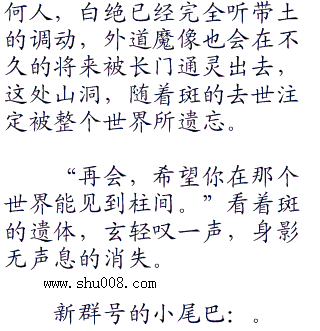 何人，白绝已经完全听带土
的调动，外道魔像也会在不
久的将来被长门通灵出去，
这处山洞，随着斑的去世注
定被整个世界所遗忘。
“再会，希望你在那个
世界能见到柱间。”看着斑
的遗体，玄轻叹一声，身影
无声息的消失。
www.shu008.com
新群号的小尾巴：。